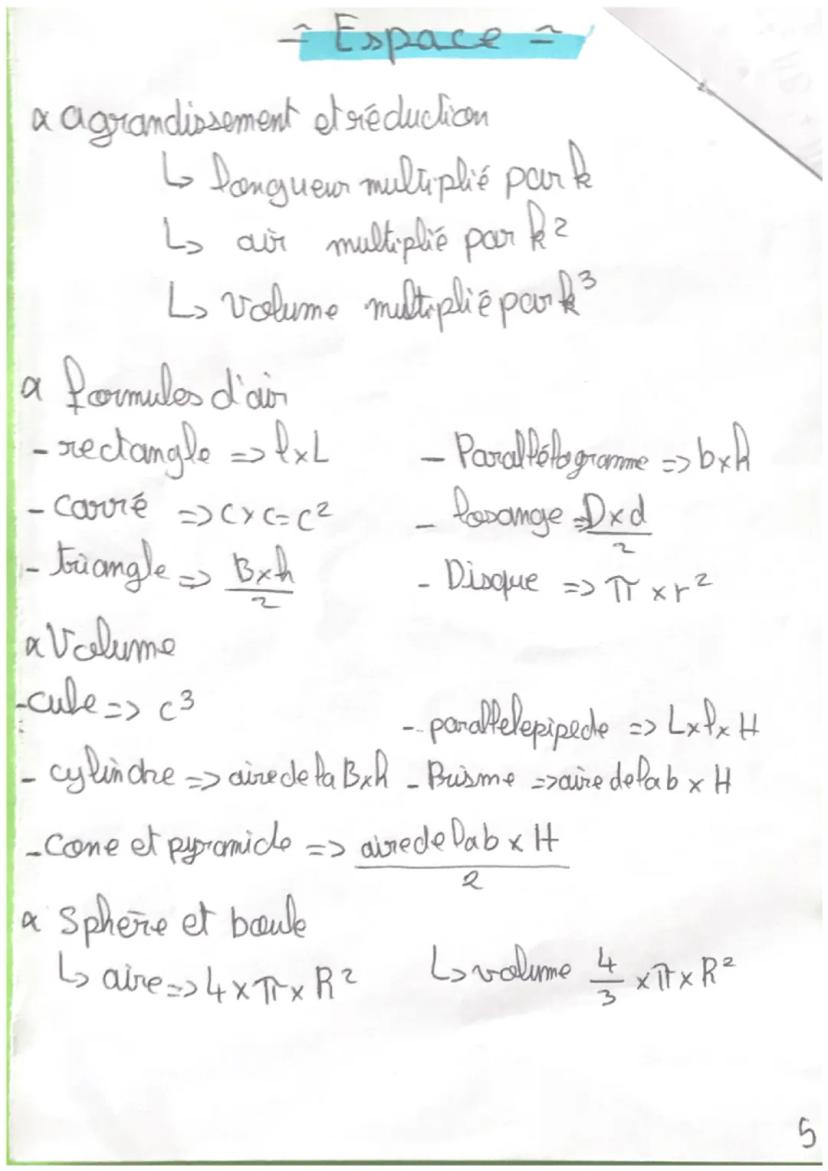 - Espace -
α agrandissement et réduction
↳ longueur multiplié par k
↳ air multiplié par k²
↳ Volume multiplié par k³
α formules d'air
- rectangle => l x L
- Parallélogramme => b x h
- Carré => c x c = c²
- losange => D x d / 2
- triangle => B x h / 2
- Disque => π x r²
α Volume
- cube => c³
- parallelepipede => L x l x H
- cylindre => aire de la B x h
- Prisme => aire de la b x H
- Cone et pyramide => aire de la b x H / 2
α Sphère et boule
↳ aire => 4 x π x R²
↳ volume 4/3 x π x R²
5